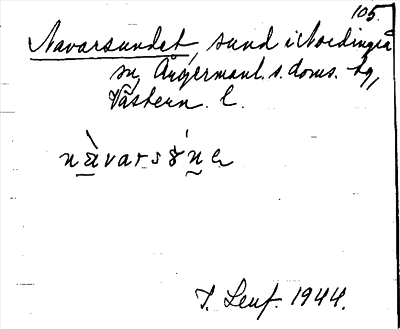 105.
Navarsundet, sund i Nordingrå
sn, Ångermanl. s. doms. tg,
Västern. l.
T. Leuf. 1944.